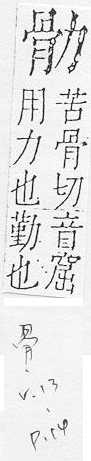 𠡳
苦骨切音窟
用力也勤也
骨
v.13
p.14